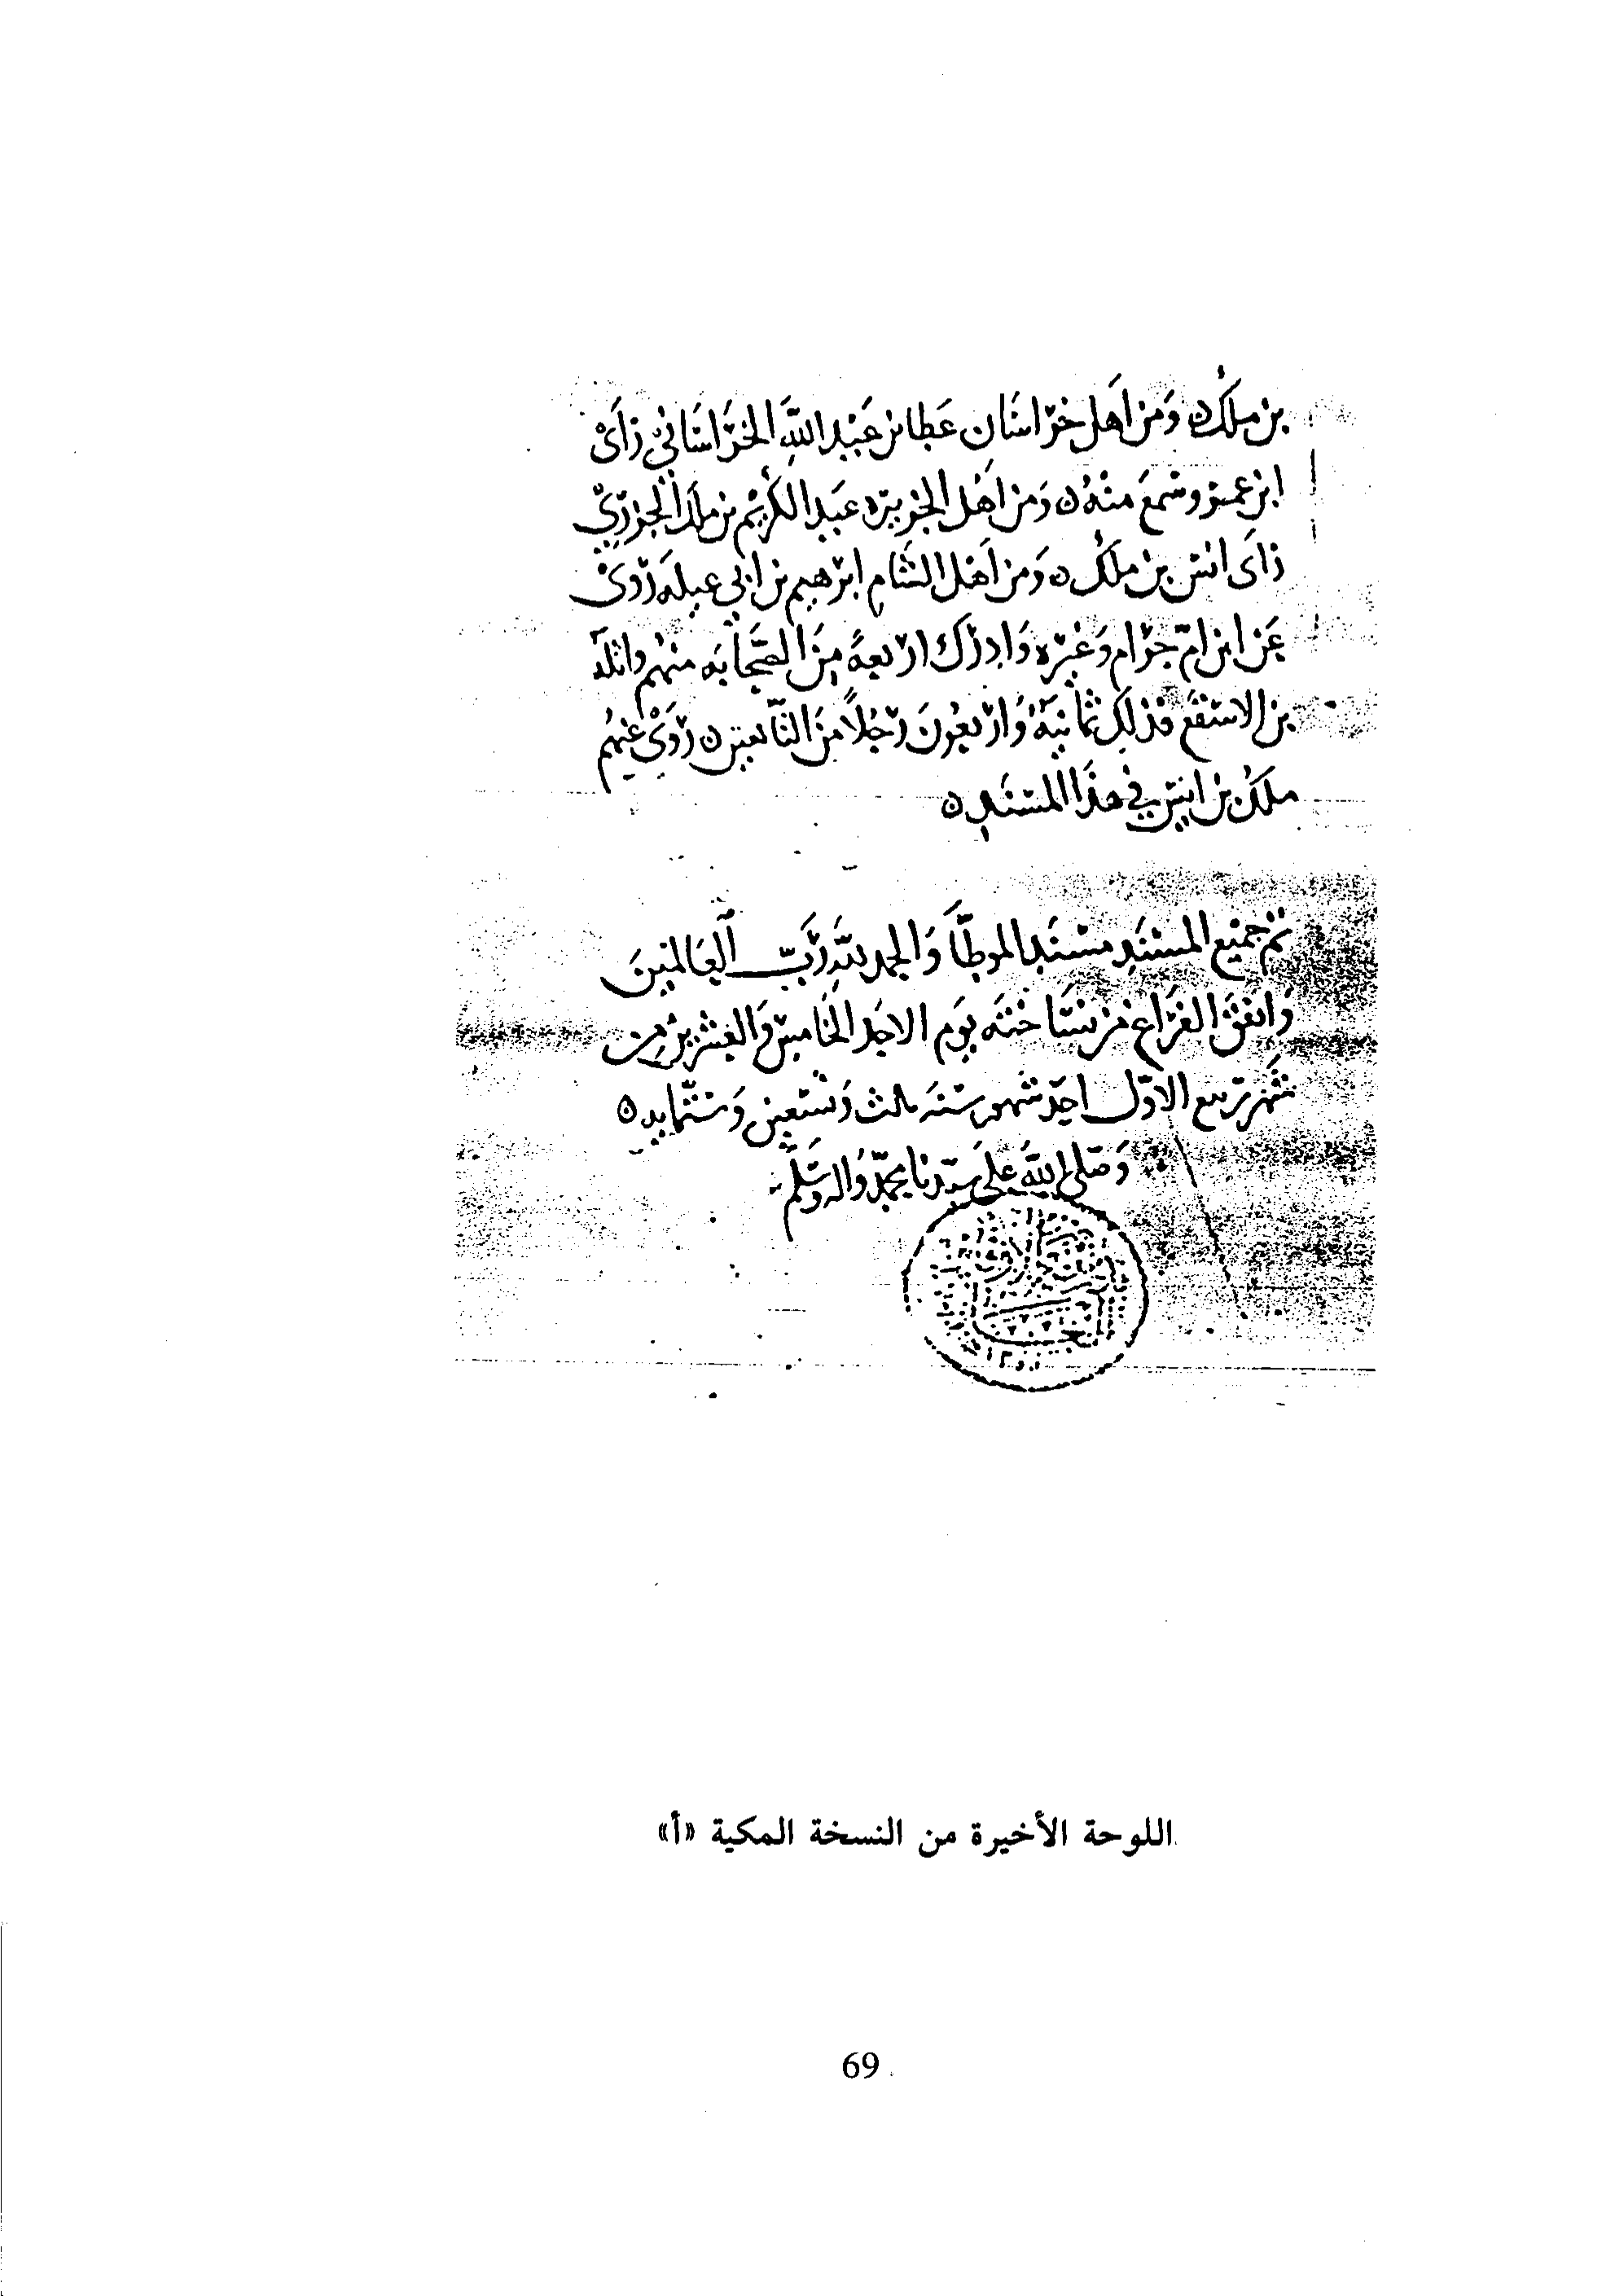 بن ملك ومن اهل خراسان عطا بن عبد الله الخراساني رأى
ابن عمر وسمع منه ومن اهل الجزيره عبد الكريم بن ملك الجزري
رأى انس بن ملك ومن اهل الشام ابرهيم بن ابي عبله روى
عن ابن ام حرام وغيره وادرك اربعة من الصحابه منهم واثلة
بن الاسقع فذلك ثمانية واربعون رجلاً من التابعين روى عنهم
ملك بن انس في هذا المسند
تم جميع المسند مسند الموطأ والحمد لله رب العالمين
واتفق الفراغ من نساخته يوم الاحد الخامس والعشرين من
شهر ربيع الاول احد شهور سنة ثلث وتسعين وستمايه
وصلى الله على سيدنا محمد واله وسلم
اللوحة الأخيرة من النسخة المكية «أ»
69